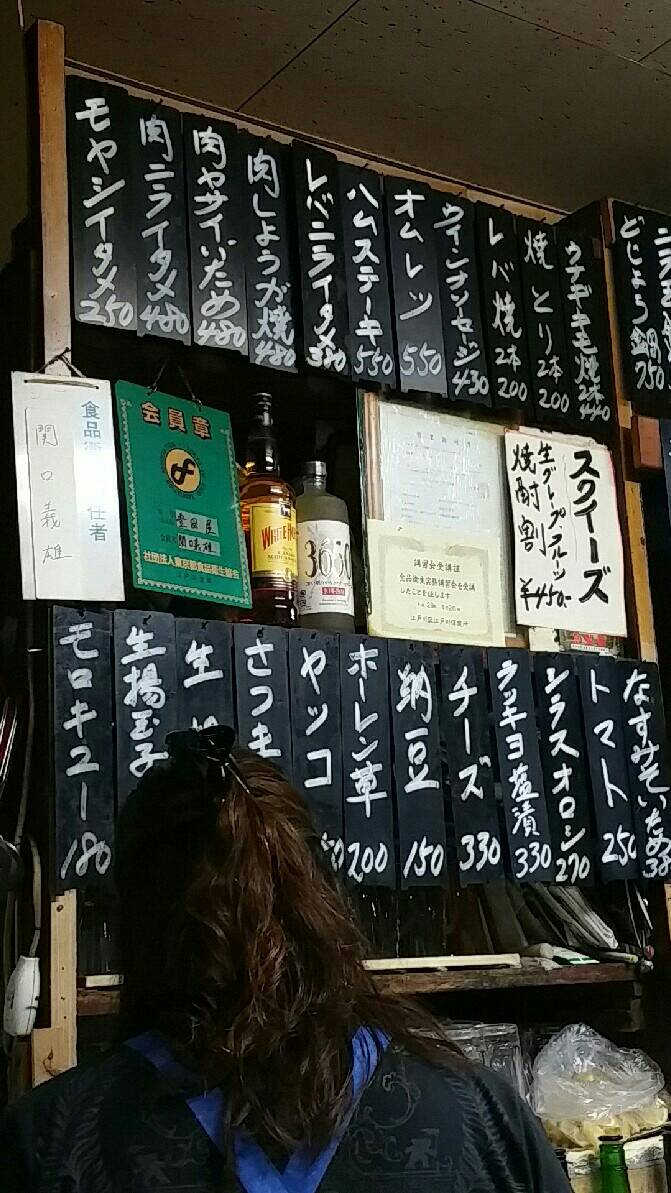 モヤシイタメ 250
肉ニライタメ 480
肉ヤサイいため 480
肉しょうが焼 480
レバニライタメ
ハムステーキ 550
オムレツ 550
ウインナソーセージ 430
レバ焼 2本 200
焼とり 2本 200
ウナギキモ焼 2本 440
どじょう 750
食品衛 任者
関口義雄
会員章
関口義雄
WHITE HO
3650
講習会受講證
食品衛生実務講習会を受講
したことを証します
スクイーズ
生グレープフルーツ
焼酎割
¥450-
モロキユー 180
生揚玉子
生
さつま
ヤッコ
ホーレン草 200
納豆 150
チーズ 330
ラッキョ塩漬 330
シラスオロシ 270
トマト 250
なすみそいため 38